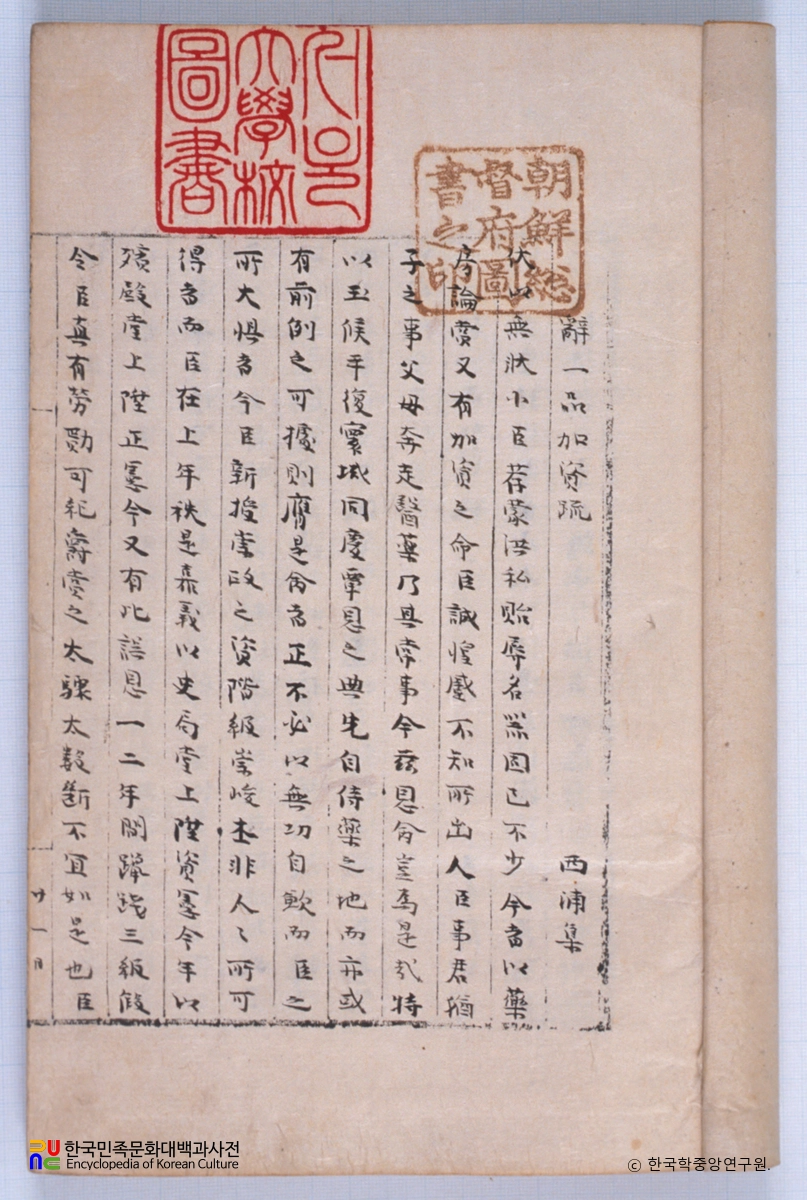 辭一品加資疏 西浦集
伏以無狀小臣荐蒙洪私貽辱名器固已不少今者以藥
房論賞又有加資之命臣誠惶蹙不知所出人臣事君猶
子之事父母奔走醫藥乃其常事今玆恩命豈爲是哉特
以玉候平復寰域同慶覃恩之典先自侍藥之地而亦或
有前例之可據則膺是命者正不必以無功自歉而臣之
所大懼者今臣新授崇政之資階級崇峻本非人人所可
得者而臣在上年秩是嘉義以史局堂上陞資憲今年以
殯殿堂上陞正憲今又有此誤恩一二年間躐踐三級假
令臣眞有勞勩可紀爵賞之太驟太數斷不宜如是也臣
廿一
朝鮮総
督府圖
書之印
大學校
圖書
한국민족문화대백과사전
Encyclopedia of Korean Culture
ⓒ 한국학중앙연구원.